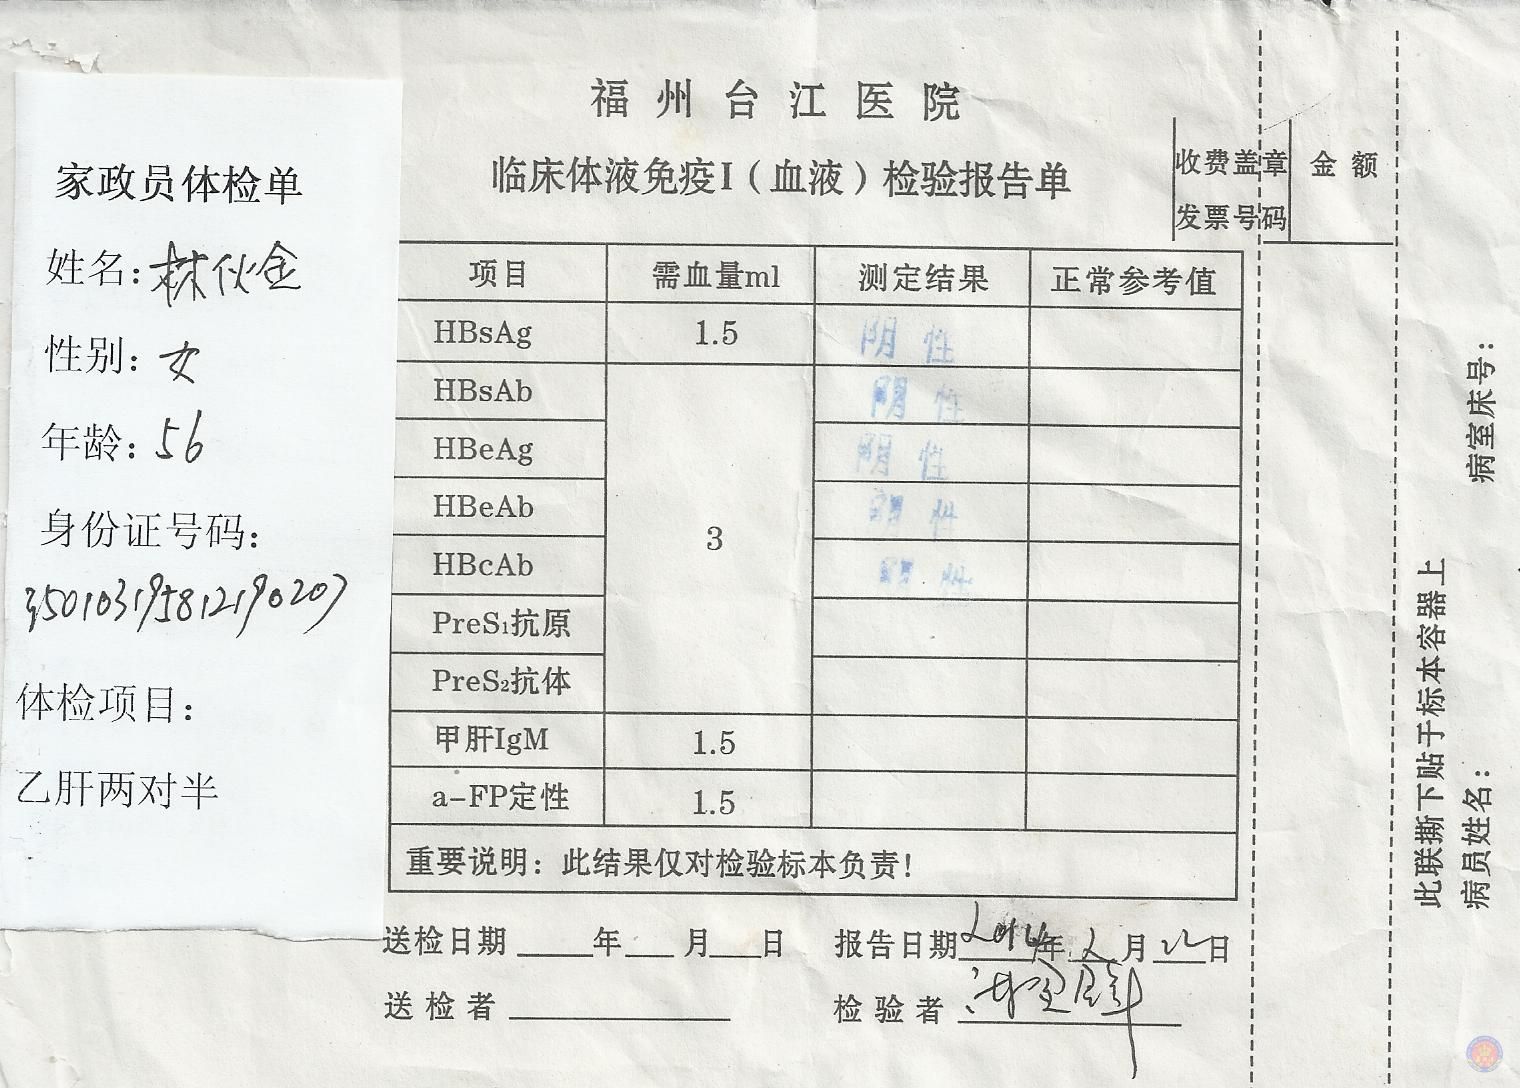 福州台江医院
临床体液免疫I(血液)检验报告单
收费盖章 金额
发票号码
家政员体检单
姓名:林伙金
性别:女
年龄:56
身份证号码:
350103195812190207
体检项目:
乙肝两对半
项目 需血量ml 测定结果 正常参考值
HBsAg 1.5 阴性
HBsAb 阴性
HBeAg 阴性
HBeAb 阴性
3
HBcAb 阴性
PreS₁抗原
PreS₂抗体
甲肝IgM 1.5
a-FP定性 1.5
重要说明:此结果仅对检验标本负责!
送检日期 年 月 日 报告日期2014年2月22日
送检者 检验者
此联撕下贴于标本容器上
病员姓名: 病室床号: